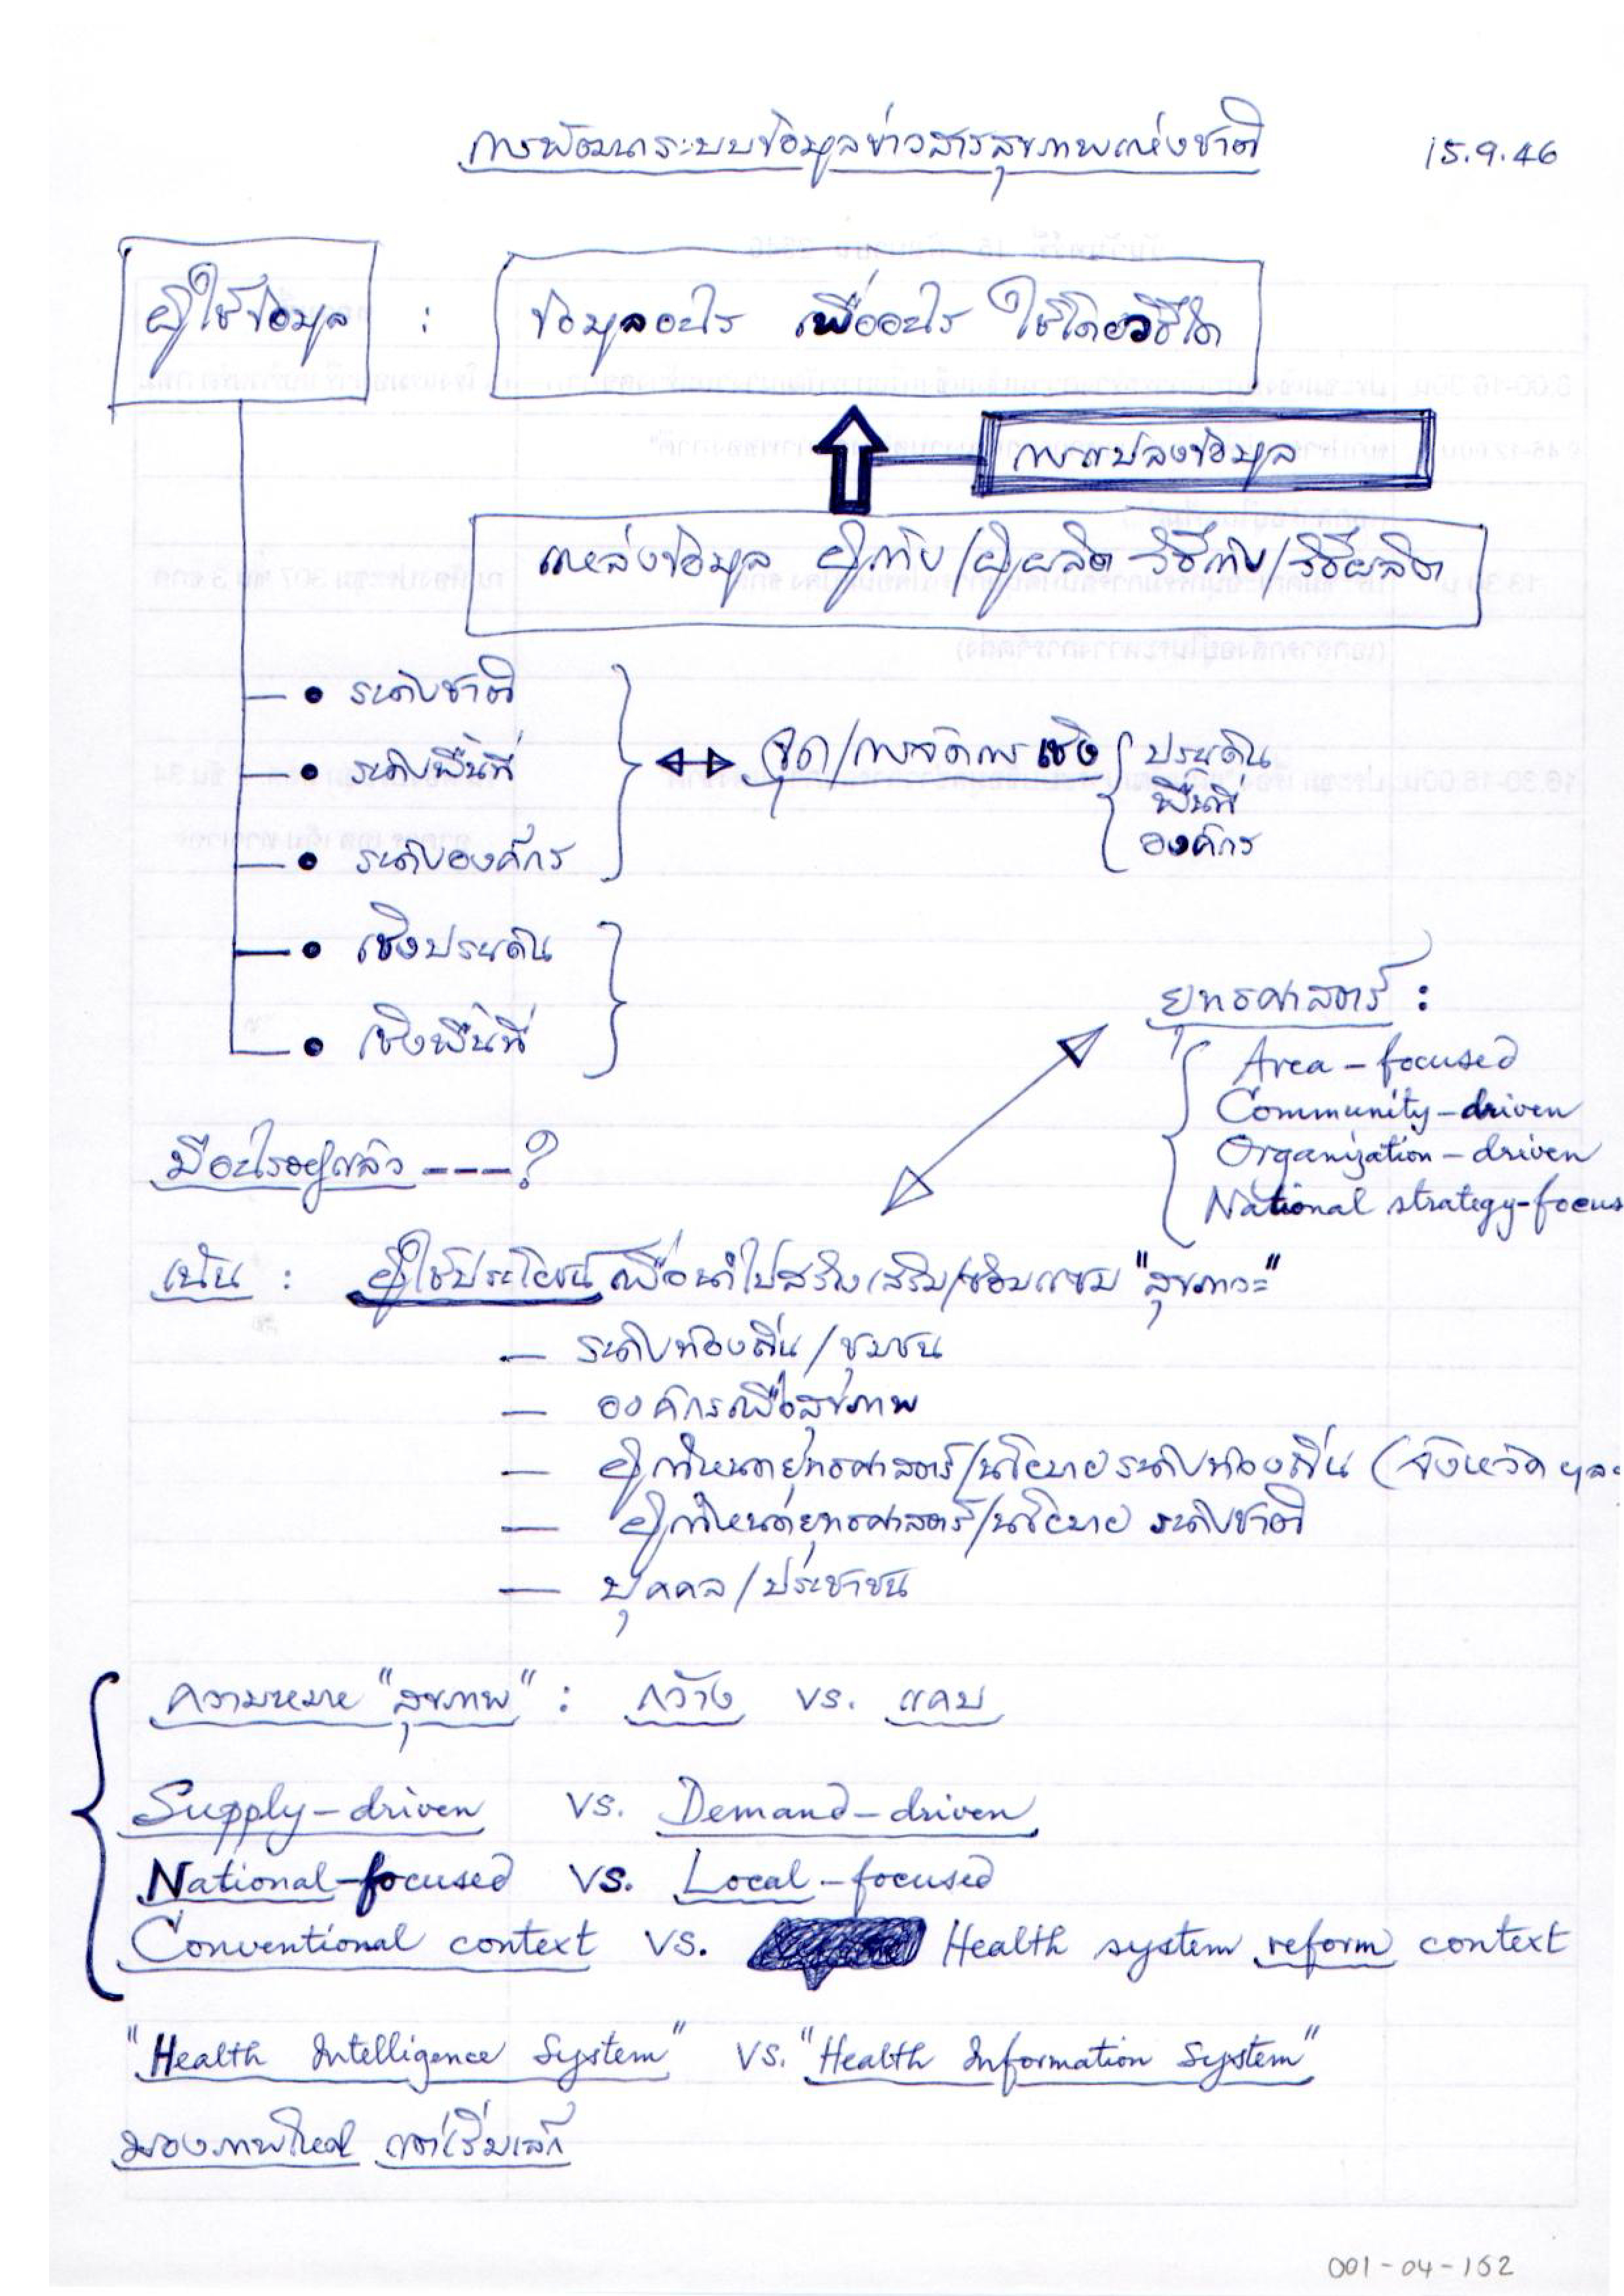 การพัฒนาระบบข้อมูลข่าวสารสุขภาพแห่งชาติ 15.9.46
ผู้ใช้ข้อมูล : ข้อมูลอะไร เพื่ออะไร ใช้โดยวิธีใด
การแปลงข้อมูล
แหล่งข้อมูล ผู้เก็บ/ผู้ผลิต วิธีเก็บ/วิธีผลิต
• ระดับชาติ
• ระดับพื้นที่
• ระดับองค์กร
ชุด/การจัดการ เชิง
ประเด็น
พื้นที่
องค์กร
• เชิงประเด็น
• เชิงพื้นที่
ยุทธศาสตร์ :
Area-focused
Community-driven
Organization-driven
National strategy-focus
มีอะไรอยู่แล้ว ----?
เน้น : ผู้ใช้ประโยชน์ เพื่อนำไปสร้างเสริม/ซ่อมแซม "สุขภาวะ"
— ระดับท้องถิ่น/ชุมชน
— องค์กรเพื่อสุขภาพ
— ผู้กำหนดยุทธศาสตร์/นโยบายระดับท้องถิ่น (จังหวัด
— ผู้กำหนดยุทธศาสตร์/นโยบาย ระดับชาติ
— บุคคล/ประชาชน
ความหมาย "สุขภาพ" : กว้าง vs. แคบ
Supply-driven vs. Demand-driven
National-focused vs. Local-focused
Conventional context vs. Health system reform context
"Health Intelligence System" vs. "Health Information System"
มองภาพใหญ่ แต่เริ่มเล็ก
001-04-152